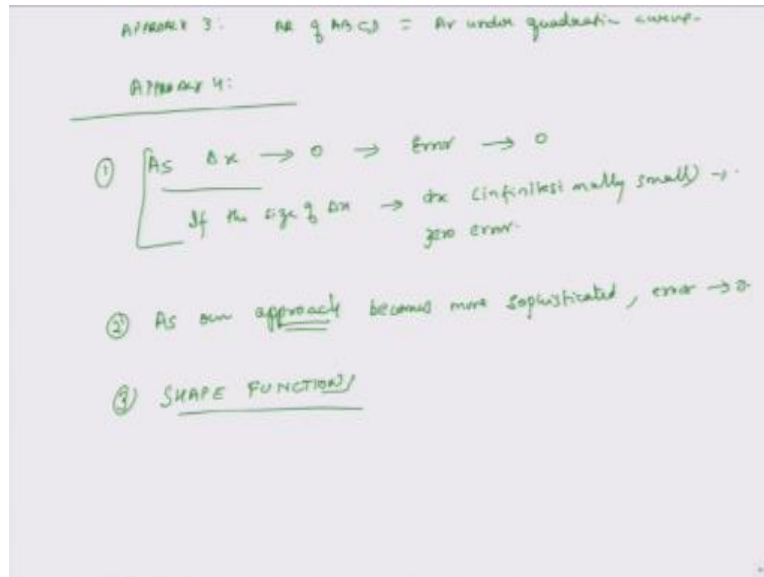 APPROACH 3: AR of ABCD = Ar under quadratic curve.
APPROACH 4:
① As Δx → 0 → Error → 0
If the size of Δx → dx (infinitesimally small) →
zero error.
② As our approach becomes more sophisticated, error → 0
③ SHAPE FUNCTIONS